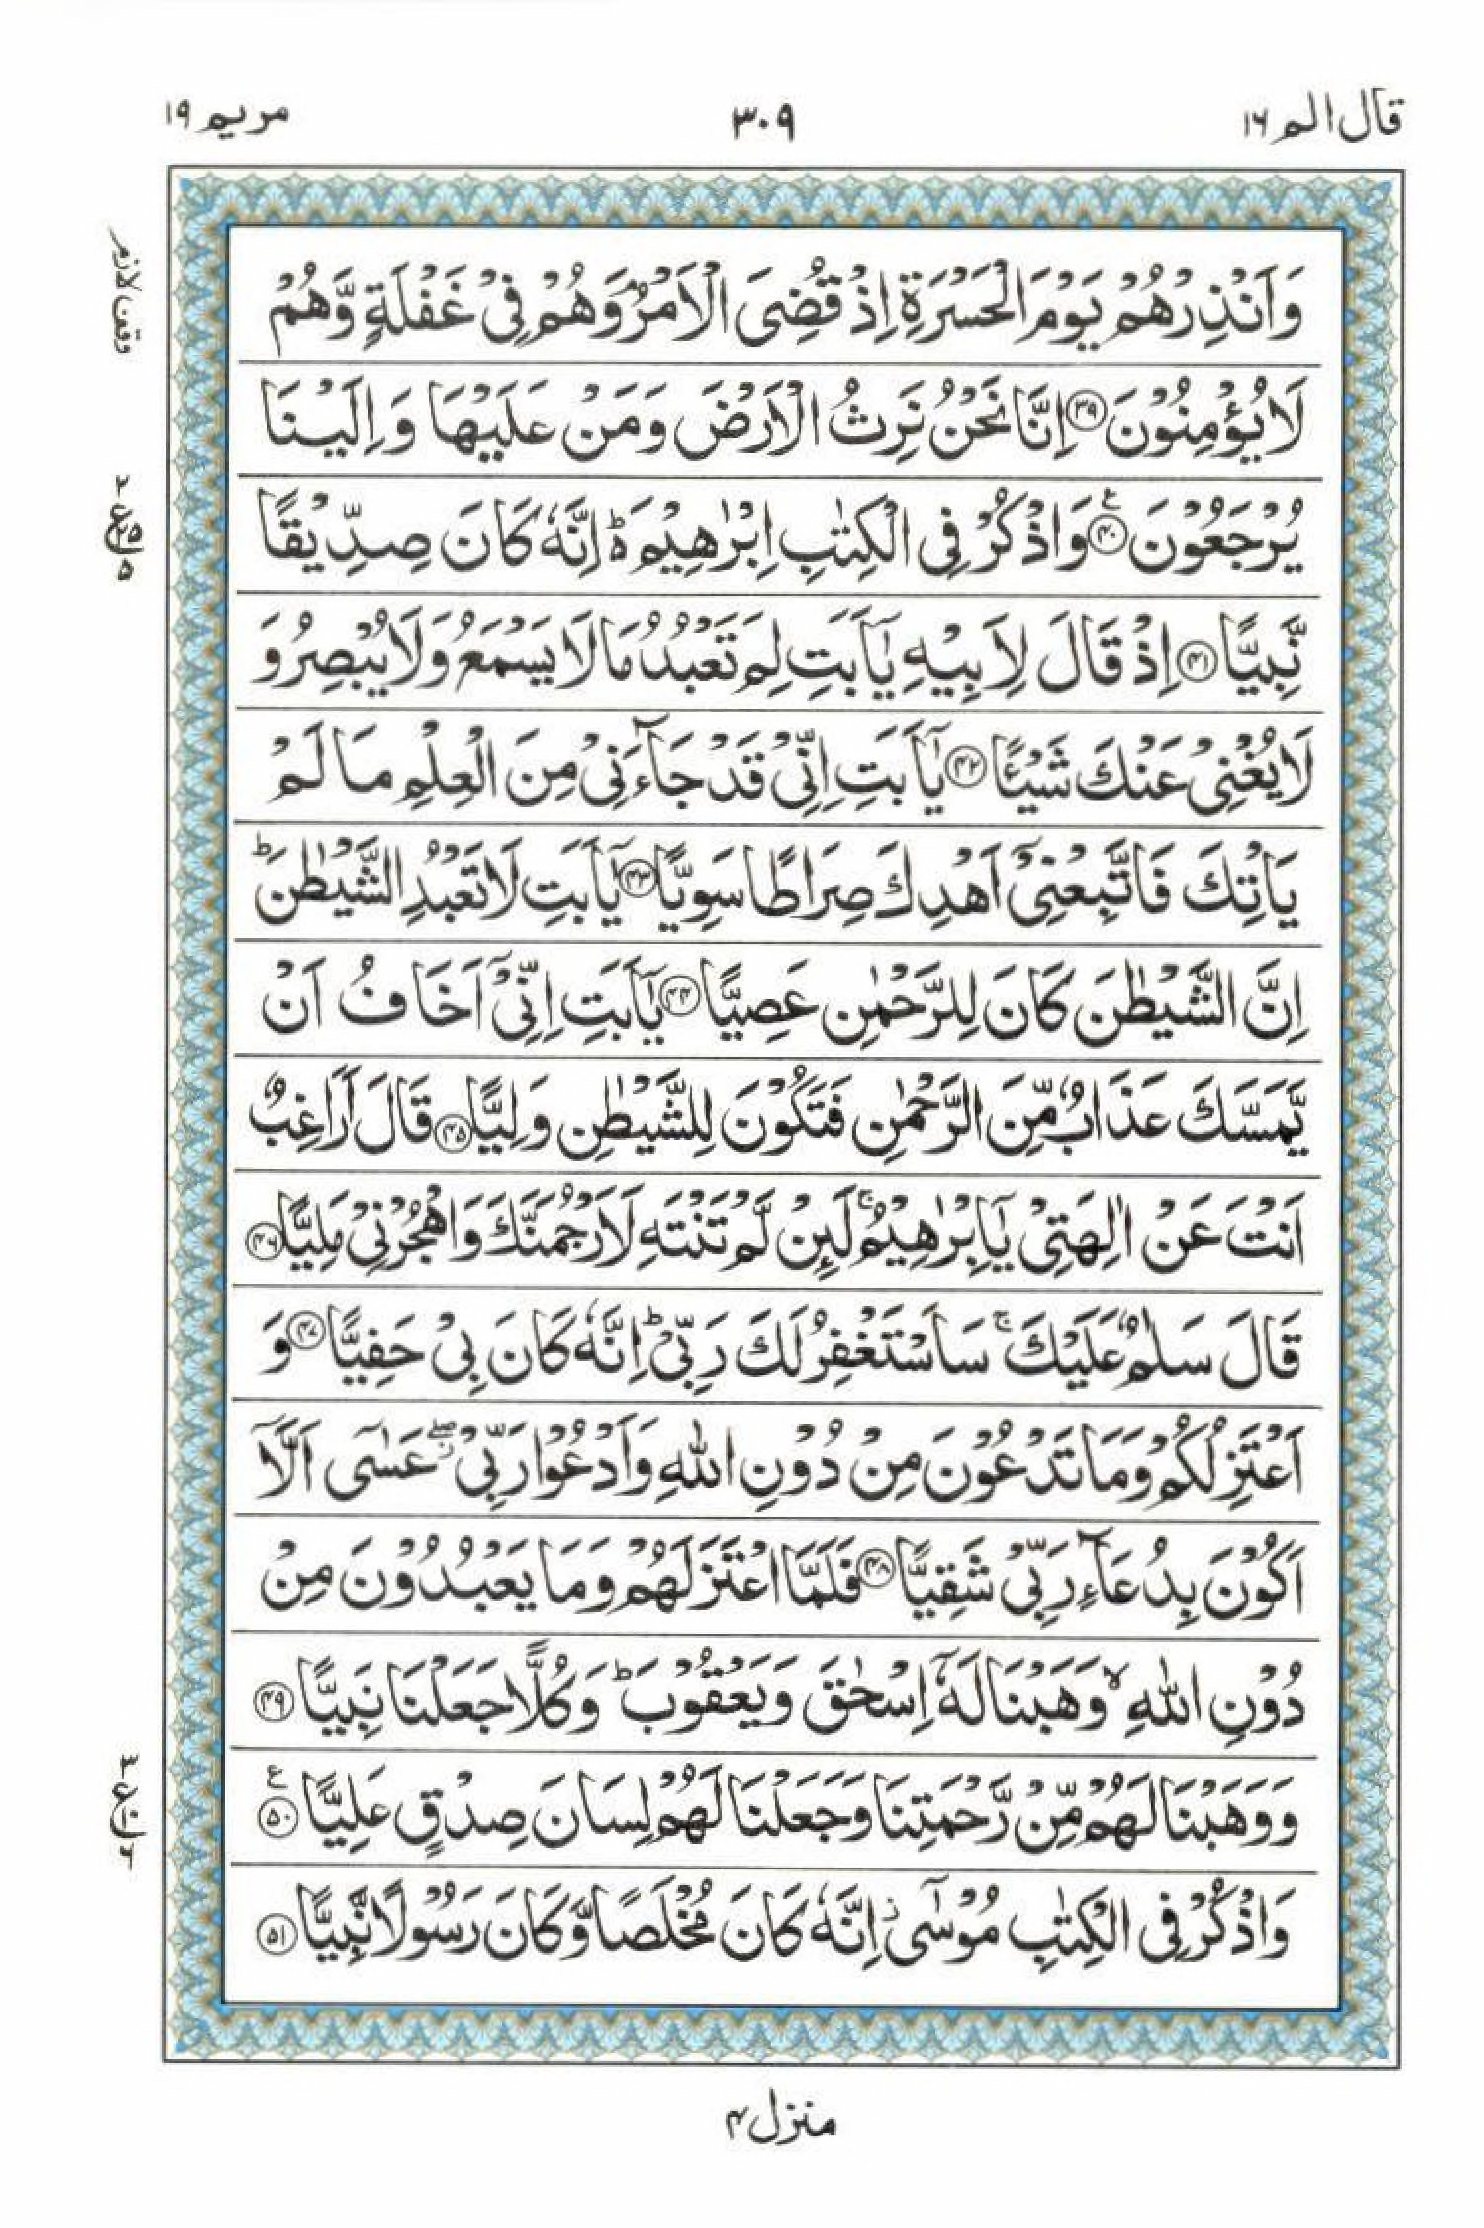 قال الم ١٦
٣٠٩
مريم ١٩
وقف لازم
وَاَنْذِرْهُمْ يَوْمَ الْحَسْرَةِ اِذْ قُضِىَ الْاَمْرُۘ وَهُمْ فِىْ غَفْلَةٍ وَّهُمْ
لَا يُؤْمِنُوْنَ ۝٣٩ اِنَّا نَحْنُ نَرِثُ الْاَرْضَ وَمَنْ عَلَيْهَا وَاِلَيْنَا
يُرْجَعُوْنَ ۝٤٠ۧ وَاذْكُرْ فِى الْكِتٰبِ اِبْرٰهِيْمَ ۬ؕ اِنَّهٗ كَانَ صِدِّيْقًا
نَّبِيًّا ۝٤١ اِذْ قَالَ لِاَبِيْهِ يٰۤاَبَتِ لِمَ تَعْبُدُ مَا لَا يَسْمَعُ وَلَا يُبْصِرُ وَ
لَا يُغْنِىْ عَنْكَ شَيْـًٔا ۝٤٢ يٰۤاَبَتِ اِنِّىْ قَدْ جَآءَنِىْ مِنَ الْعِلْمِ مَا لَمْ
يَاْتِكَ فَاتَّبِعْنِىْۤ اَهْدِكَ صِرَاطًا سَوِيًّا ۝٤٣ يٰۤاَبَتِ لَا تَعْبُدِ الشَّيْطٰنَ ؕ
اِنَّ الشَّيْطٰنَ كَانَ لِلرَّحْمٰنِ عَصِيًّا ۝٤٤ يٰۤاَبَتِ اِنِّىْۤ اَخَافُ اَنْ
يَّمَسَّكَ عَذَابٌ مِّنَ الرَّحْمٰنِ فَتَكُوْنَ لِلشَّيْطٰنِ وَلِيًّا ۝٤٥ قَالَ اَرَاغِبٌ
اَنْتَ عَنْ اٰلِهَتِىْ يٰۤاِبْرٰهِيْمُ ۚ لَىِٕنْ لَّمْ تَنْتَهِ لَاَرْجُمَنَّكَ وَاهْجُرْنِىْ مَلِيًّا ۝٤٦
قَالَ سَلٰمٌ عَلَيْكَ ۚ سَاَسْتَغْفِرُ لَكَ رَبِّىْ ؕ اِنَّهٗ كَانَ بِىْ حَفِيًّا ۝٤٧ وَ
اَعْتَزِلُكُمْ وَمَا تَدْعُوْنَ مِنْ دُوْنِ اللّٰهِ وَاَدْعُوْا رَبِّىْ ۖ عَسٰٓى اَلَّاۤ
اَكُوْنَ بِدُعَآءِ رَبِّىْ شَقِيًّا ۝٤٨ فَلَمَّا اعْتَزَلَهُمْ وَمَا يَعْبُدُوْنَ مِنْ
دُوْنِ اللّٰهِ ۙ وَهَبْنَا لَهٗۤ اِسْحٰقَ وَيَعْقُوْبَ ؕ وَكُلًّا جَعَلْنَا نَبِيًّا ۝٤٩
وَوَهَبْنَا لَهُمْ مِّنْ رَّحْمَتِنَا وَجَعَلْنَا لَهُمْ لِسَانَ صِدْقٍ عَلِيًّا ۝٥٠ۧ
وَاذْكُرْ فِى الْكِتٰبِ مُوْسٰٓى ۡ اِنَّهٗ كَانَ مُخْلَصًا وَّكَانَ رَسُوْلًا نَّبِيًّا ۝٥١
منزل ٤